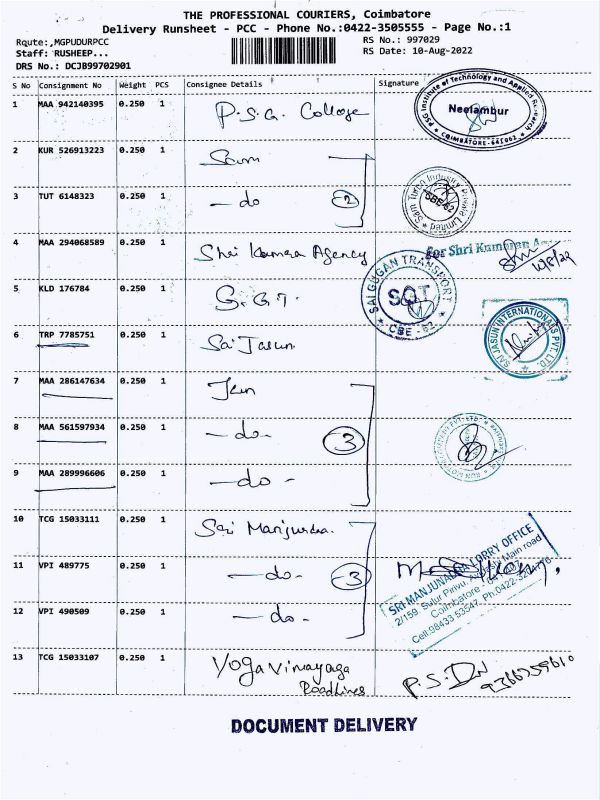 THE PROFESSIONAL COURIERS, Coimbatore
Delivery Runsheet - PCC - Phone No.:0422-3505555 - Page No.:1
Rqute:,MGPUDURPCC RS No.: 997029
Staff: RUSHEEP... RS Date: 10-Aug-2022
DRS No.: DCJB99702901
S No Consignment No Weight PCS Consignee Details Signature
1 MAA 942140395 0.250 1 P.S.G. College
PSG Institute of Technology and Applied Research
Neelambur
COIMBATORE-641062
2 KUR 526913223 0.250 1 Sam
3 TUT 6148323 0.250 1 - do 2
Sam Turbo Industry Private Limited
CBE-62
4 MAA 294068589 0.250 1 Shri Kumaran Agency
For Shri Kumaran
10/8/22
5 KLD 176784 0.250 1 S.G.T.
SAI GUGAN TRANSPORT
SGT
CBE - 62
6 TRP 7785751 0.250 1 Sai Jasun
SAI JASUN INTERNATIONALS PVT LTD.
7 MAA 286147634 0.250 1
8 MAA 561597934 0.250 1 - do - 3
9 MAA 289996606 0.250 1 - do -
10 TCG 15033111 0.250 1 Sri Manjunatha
11 VPI 489775 0.250 1 - do - 3
12 VPI 490509 0.250 1 - do -
SRI MANJUNATHA LORRY OFFICE
2/159, Sulur Pirivu, Main road
Coimbatore
Cell:98433 53547, Ph:0422-
13 TCG 15033107 0.250 1 Yoga Vinayaga
Roadlines
P.S.
DOCUMENT DELIVERY